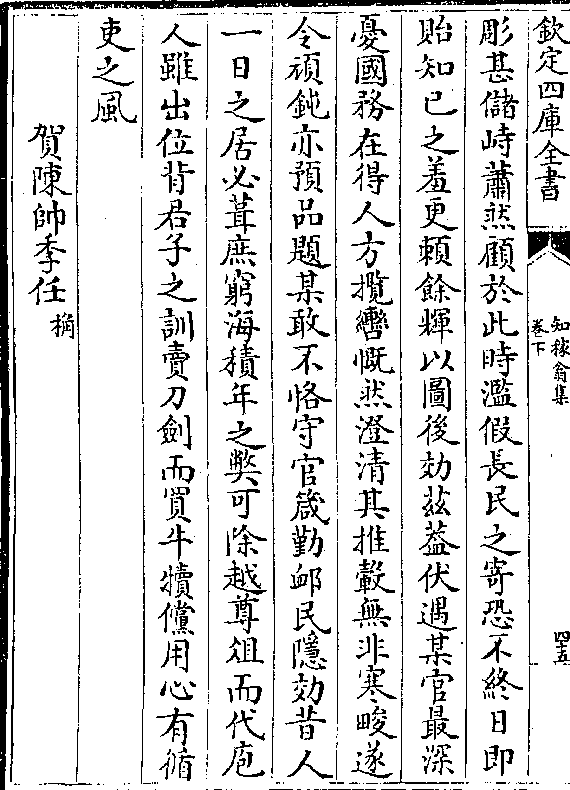 欽定四庫全書
知稼翁集
卷下
四十五
彫甚儲峙蕭然顧於此時濫假長民之寄恐不終日即
貽知已之羞更頼餘輝以圖後効兹葢伏遇某官最深
憂國務在得人方攬轡慨然澄清其推轂無非寒畯遂
令頑鈍亦預品題某敢不恪守官箴勤邮民隱効昔人
一日之居必葺庶窮海積年之弊可除越尊俎而代庖
人雖出位背君子之訓賣刀劍而買牛犢儻用心有循
吏之風
賀陳帥季任桷